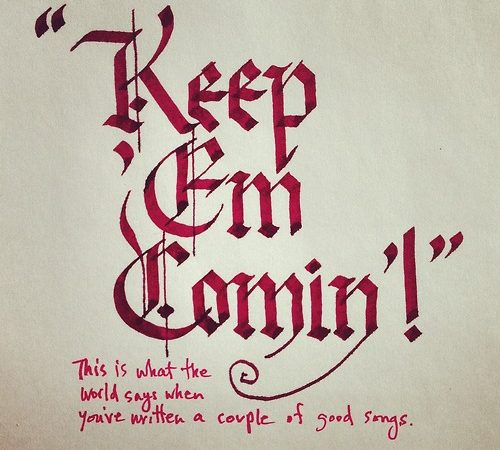 “Keep
’Em
Comin’!”
This is what the
world says when
you've written a couple of good songs.